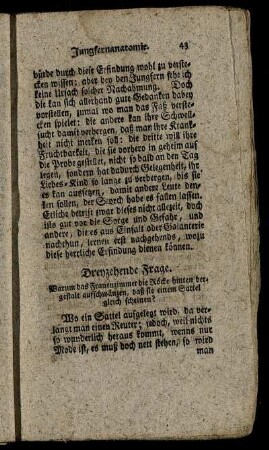 Jungfernanatomie. 43
bürde durch diese Erfindung wohl zu verste-
cken wissen; aber bey den Jungfern sehe ich
keine Ursach solcher Nachahmung. Doch
die kan sich allerhand gute Gedanken dabey
vorstellen, zumal wo man das Faß verste-
cken spielet: die andere kan ihre Schwell-
sucht damit verbergen, daß man ihre Krank-
heit nicht merken soll: die dritte will ihre
Fruchtbarkeit, die sie vorhero in geheim auf
die Probe gestellet, nicht so bald an den Tag
legen, sondern hat dadurch Gelegenheit, ihr
Liebes-Kind so lange zu verbergen, bis sie
es kan aussetzen, damit andere Leute den-
ken sollen, der Storch habe es fallen lassen.
Etliche betrift zwar dieses nicht allezeit, doch
ists gut vor die Sorge und Gefahr, und
andere, die es aus Einfalt oder Galanterie
nachthun, lernen erst nachgehends, wozu
diese herrliche Erfindung dienen können.
Dreyzehende Frage.
Warum das Frauenzimmer die Röcke hinten der-
gestalt aufschwänzen, daß sie einem Sattel
gleich scheinen?
Wo ein Sattel aufgelegt wird, da ver-
langt man einen Reuter; jedoch, weil nichts
so wunderlich heraus kommt, wenns nur
Mode ist, es muß doch nett stehen, so wird
man